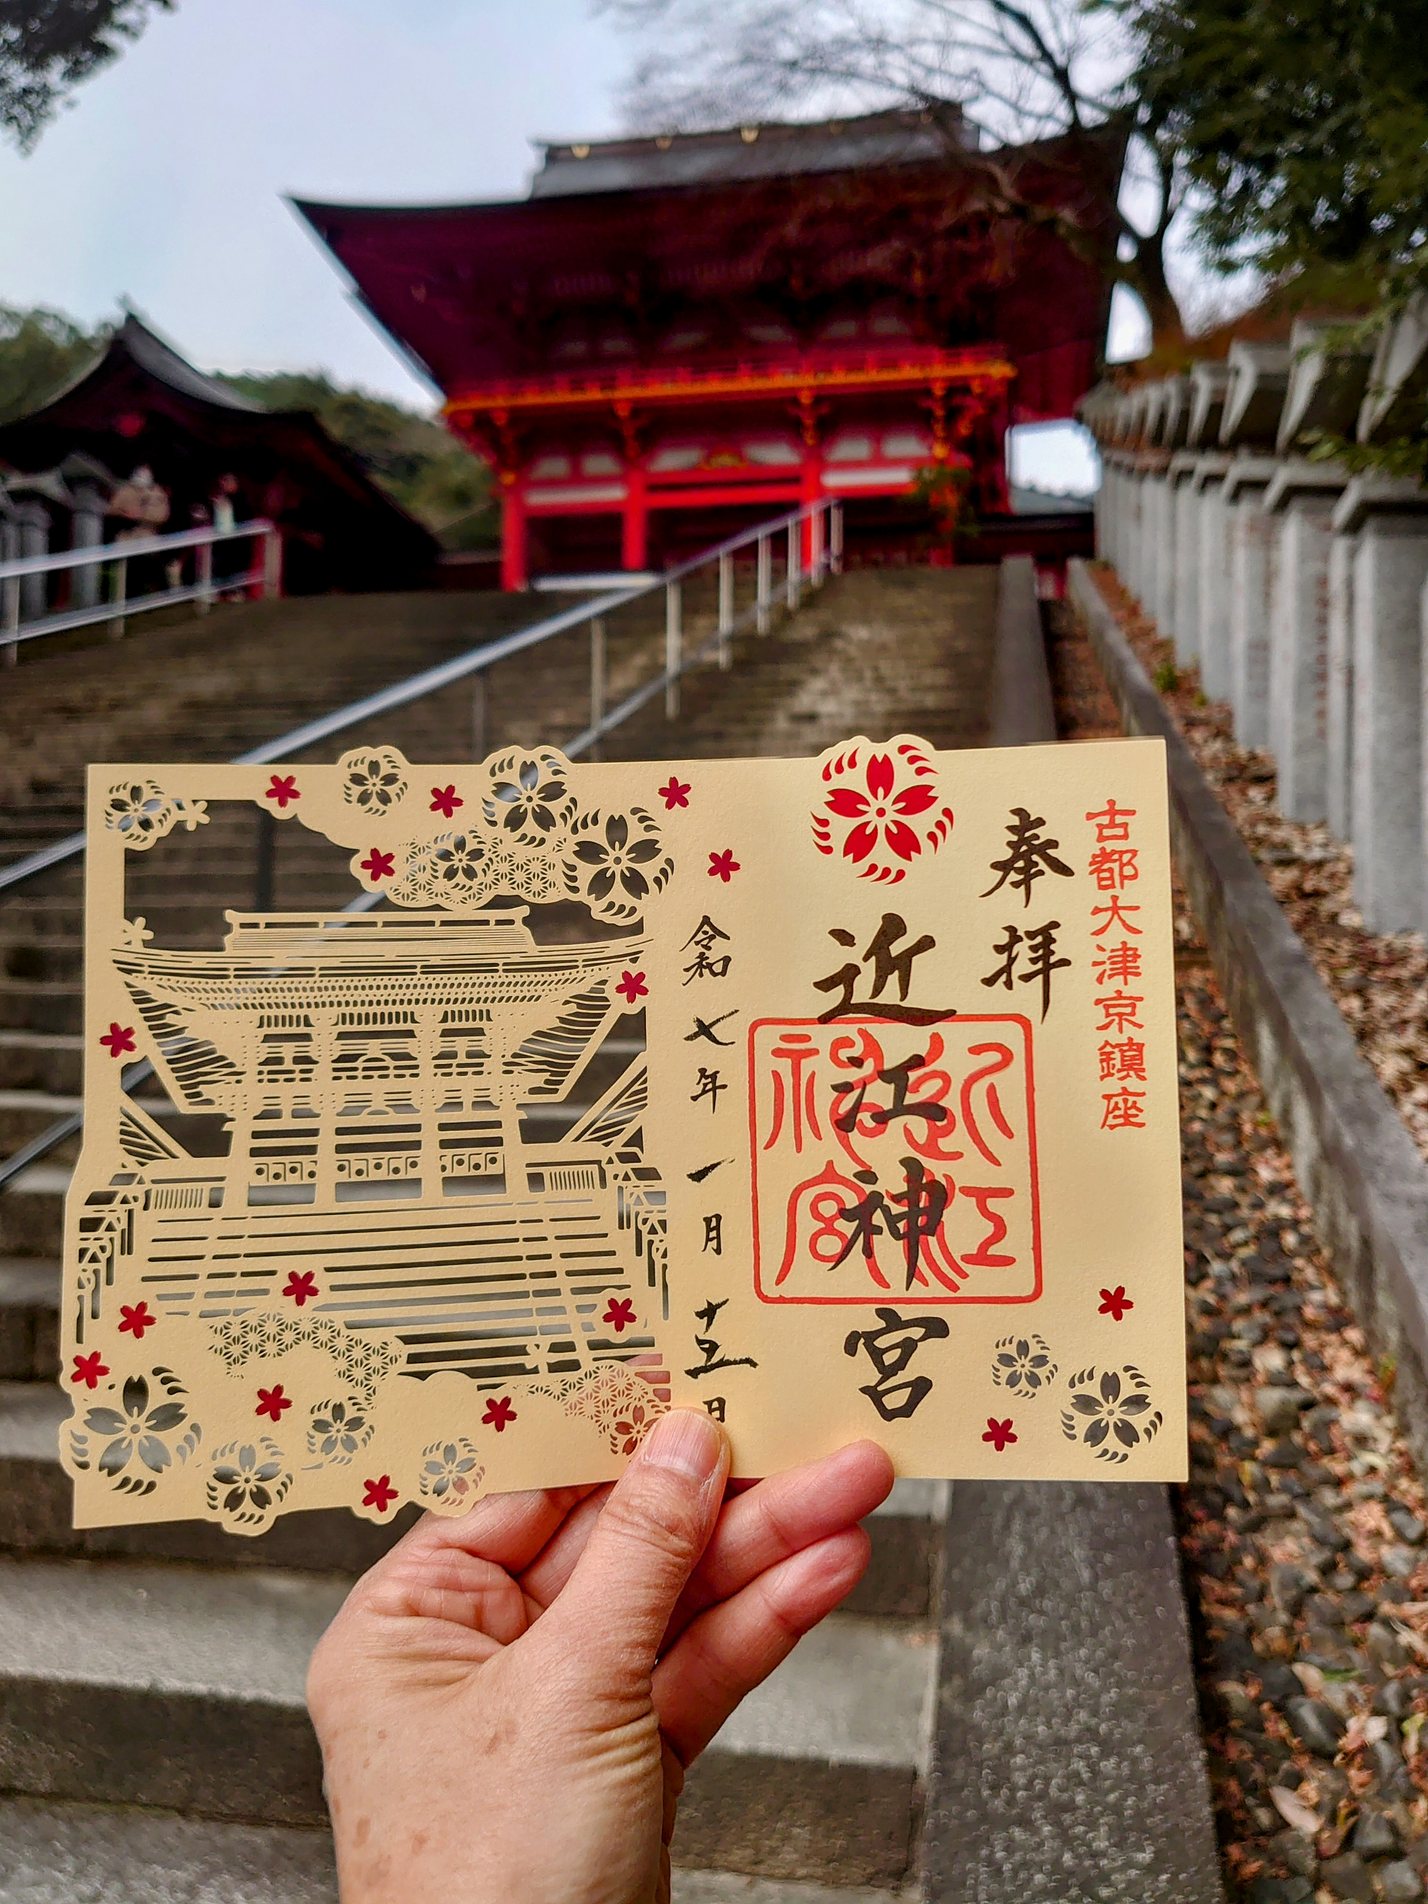 古都大津京鎮座
奉拝
近江神宮
近江
神宮
令和七年一月十五日